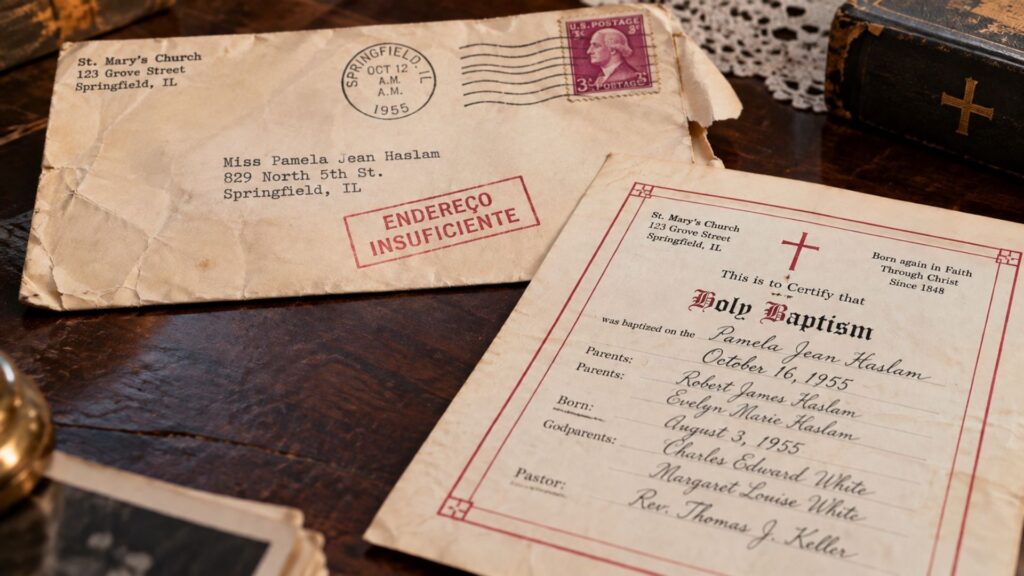 St. Mary's Church
123 Grove Street
Springfield, IL
SPRINGFIELD, IL
OCT 12
A.M.
A.M.
1955
U.S. POSTAGE
3¢ 3¢
3¢ POSTAGE
Miss Pamela Jean Haslam
829 North 5th St.
Springfield, IL
ENDEREÇO
INSUFICIENTE
St. Mary's Church
123 Grove Street
Springfield, IL
Born again in Faith
Through Christ
Since 1848
This is to Certify that
Holy Baptism
was baptized on the Pamela Jean Haslam
October 16, 1955
Parents: Robert James Haslam
Parents: Evelyn Marie Haslam
Born: August 3, 1955
Godparents: Charles Edward White
Margaret Louise White
Pastor: Rev. Thomas J. Keller